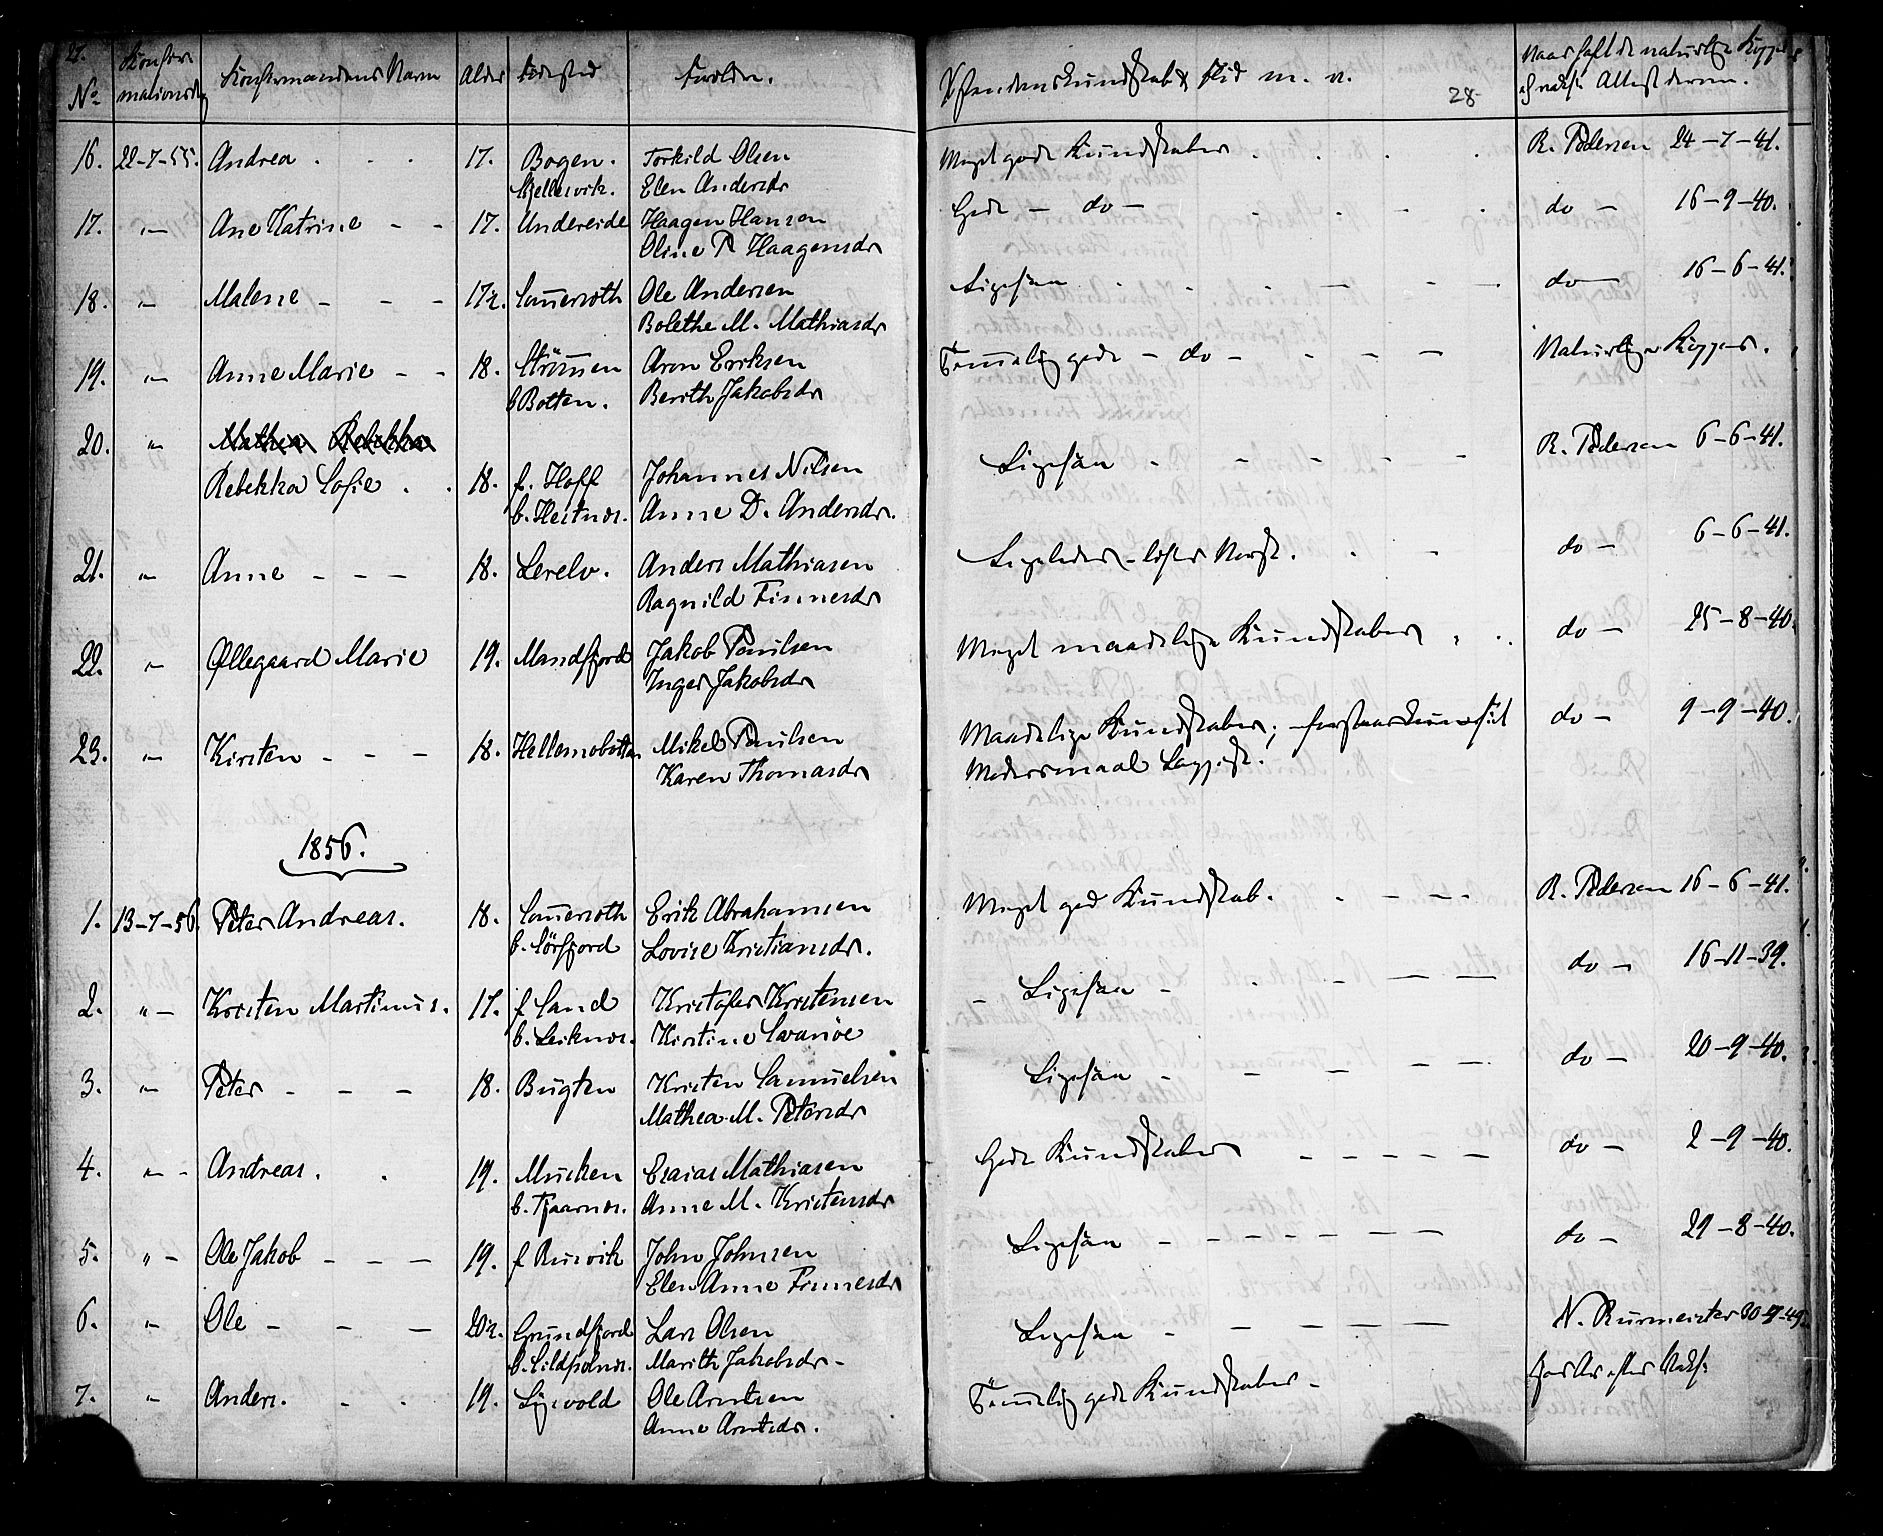 27.
No. Konfirmationsdg Konfirmandens Navn Alder Fødested Forældre. Kristendomskundskab & Flid m. v. 28 Naar haft de naturlige Kopper el. vakst. Attest derom.
16. 22-7-55. Andrea . . . 17. Bogen. Torkild Olsen Meget gode Kundskaber . . . . R. Pedersen 24-7-41.
Kjellevik. Elen Andersdr
17. "— Ane Katrine - - 17. Undereide Haagen Hansen Gode — do — . . - . do — 16-9-40.
Oline P Haagensdr
18. "— Malene - - - 17½. Sommerseth Ole Andersen Ligesaa . . . — - — do — 16-6-41.
Bolethe M. Mathiasdr
19. "— Anne Marie - - 18. Strömmen Aron Eriksen Temmelig gode — do — - - — Naturlige Kopper.
b Botten. Berith Jakobsdr
20. "— Mathea Rebekka
Rebekka Sofie . . 18. f. Hoff Johannes Nilsen Ligesaa - - - - — R. Pedersen 6-6-41.
b. Hestnes. Anne D. Andersdr.
21. "— Anne - - — 18. Lerelv. Anders Mathiasen Ligeledes - læser Norsk. . — do — 6-6-41.
Ragnild Finnesdr
22. "— Øllegaard Marie 19. Mandfjord Jakob Paulsen Meget maadelige Kundskaber . . do — 25-8-40.
Inger Jakobsdr
23. "— Kirsten - - — 18. Hellemobotten Mikel Paulsen Maadelige Kundskaber; forstaar kun sit do — 9-9-40.
Karen Thomasdr Modersmaal Lappisk.
1856.
1. 13-7-56. Peter Andreas. 18. Sommerseth Erik Abrahamsen Meget god Kundskab. . - - - R. Pedersen 16-6-41.
b. Sörfjord Lovise Kristiansdr.
2. "— Kristen Martinus. 17. f Sand Kristofer Kristensen - Ligesaa - . — — — do — 16-11-39.
b. Leiknes. Kirstine Svanöe
3. "— Peter - — — 18. Bugten Kristen Samuelsen Ligesaa - - — - — do — 20-9-40.
Mathea M. Petersdr
4. "— Andreas. . 19. Musken Esaias Mathiasen Gode Kundskaber - - - - — do — 2-9-40.
b. Kjaarnes. Anne M. Kristensdr
5. "— Ole Jakob - — — 19. f Rusvik John Johnsen Ligesaa — - - - - — — do — 29-8-40.
Elen Anne Finnesdr
6. "— Ole - — — 20½. Grundfjord Lars Olsen Ligesaa - — - — — N. Burmeister 30-9-49.
b. Sildpolnes. Marith Jakobsdr-
7. "— Anders. - . 19. Sigvold Ole Arntsen Temmelig gode Kundskaber -
Anne Arntsdr.